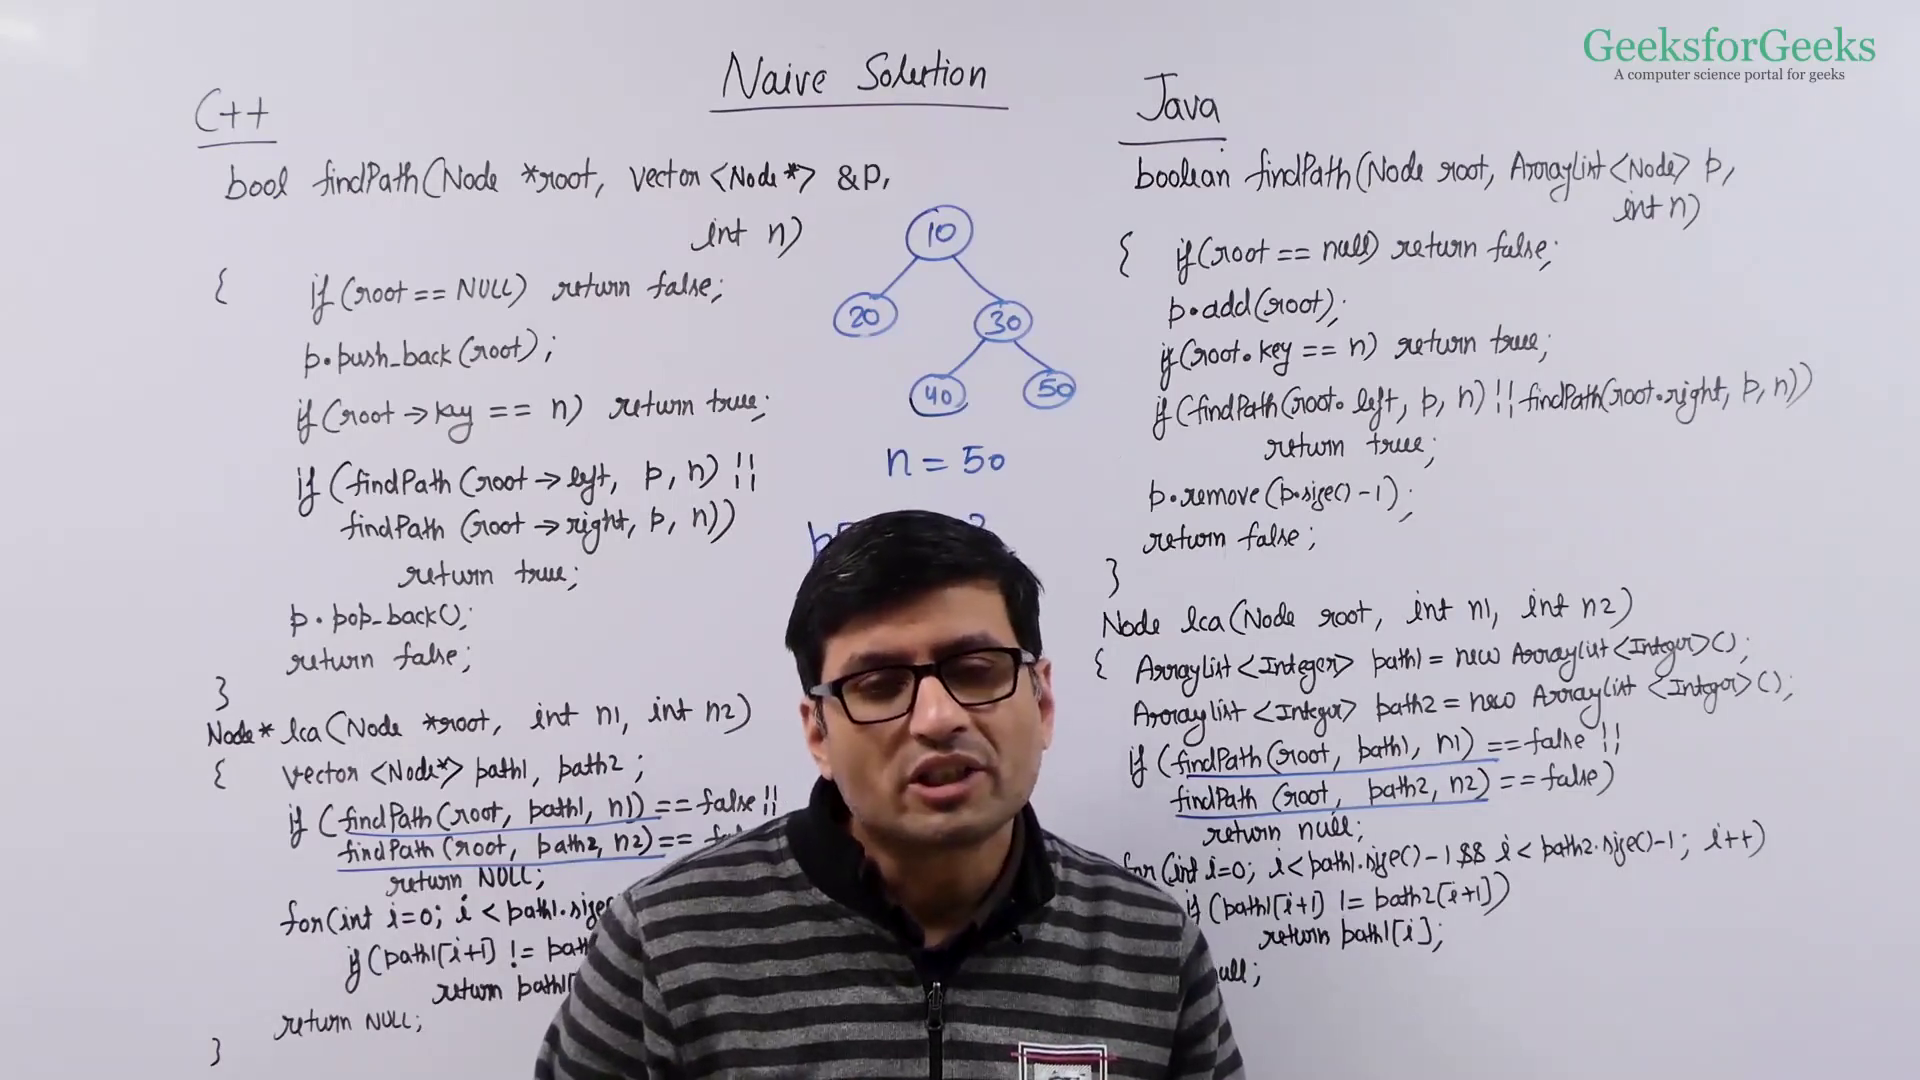 GeeksforGeeks
A computer science portal for geeks
Naive Solution
C++
bool findPath(Node *root, vector<Node*> &p,
int n)
{ if(root == NULL) return false;
p.push_back(root);
if(root->key == n) return true;
if (findPath(root->left, p, n) ||
findPath (root->right, p, n))
return true;
p.pop_back();
return false;
}
Node* lca(Node *root, int n1, int n2)
{ vector <Node*> path1, path2 ;
if (findPath(root, path1, n1) == false ||
findPath (root, path2, n2) ==
return NULL;
for(int i=0; i < path1.size
if(path1[i+1] !=
return path1
return NULL;
}
10
20
30
40
50
n = 50
Java
boolean findPath(Node root, ArrayList<Node> p,
int n)
{ if(root == null) return false;
p.add(root);
if(root.key == n) return true;
if(findPath(root.left, p, n) || findPath(root.right, p, n))
return true;
p.remove(p.size()-1);
return false;
}
Node lca(Node root, int n1, int n2)
{ ArrayList<Integer> path1 = new ArrayList<Integer>();
ArrayList<Integer> path2 = new ArrayList<Integer>();
if (findPath(root, path1, n1) == false ||
findPath (root, path2, n2) == false)
return null;
for(int i=0; i<path1.size()-1 && i<path2.size()-1; i++)
if (path1[i+1] != path2[i+1])
return path1[i];